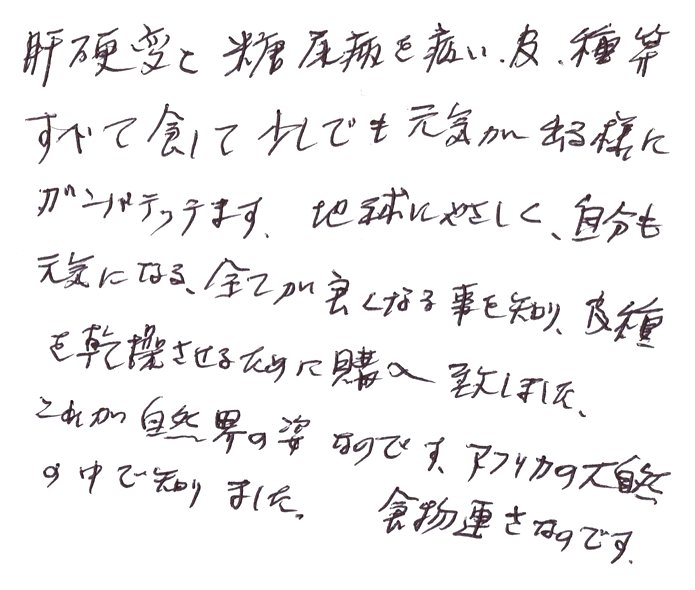 肝硬変と糖尿病を疲い、皮、種等
すべて食して少しでも元気が出る様に
ガンバテッテます、地球にやさしく、自分も
元気になる、全てが良くなる事を知り、皮種
を乾燥させるために購入致しました、
これが自然界の姿なのです、アフリカの大自然
の中で知りました。食物連さなのです、